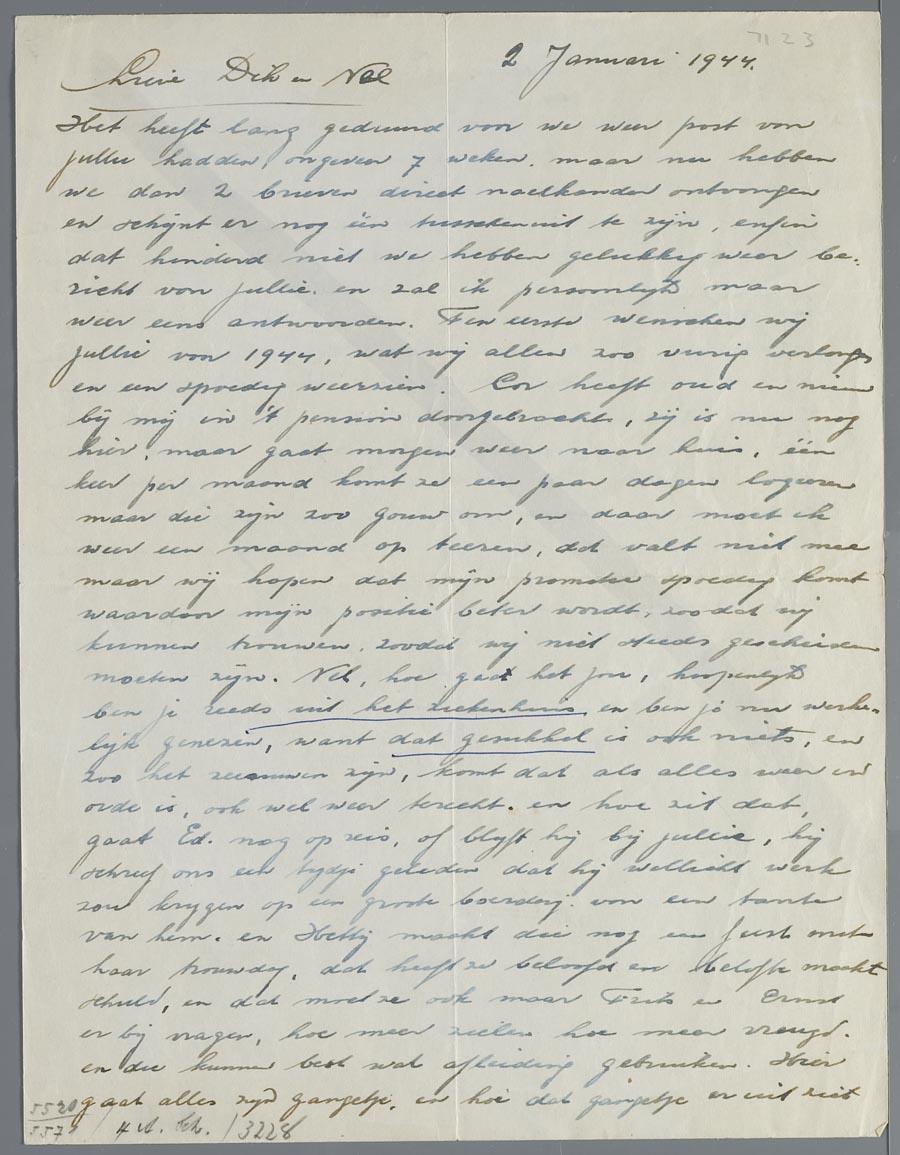 7123
2 Januari 1944.
Lieve Dik en Nel
Het heeft lang geduurd voor we weer post van
jullie hadden, ongeveer 7 weken. maar nu hebben
we dan 2 brieven direct na elkander ontvangen
en schijnt er nog één tusschenuit te zijn, enfin
dat hinderd niet we hebben gelukkig weer be-
richt van jullie. en zal ik persoonlijk maar
weer eens antwoorden. Ten eerste wenschen wij
jullie voor 1944, wat wij allen zoo vurig verlangen
en een spoedig weerzien. Cor heeft oud en nieuw
bij mij in 't pension doorgebracht, zij is nu nog
hier, maar gaat morgen weer naar huis, één
keer per maand komt ze een paar dagen logeeren
maar die zijn zoo gouw om, en daar moet ik
weer een maand op teeren, dat valt niet mee
maar wij hopen dat mijn promotie spoedig komt
waardoor mijn positie beter wordt, zoodat wij
kunnen trouwen, zoodat wij niet steeds gescheiden
moeten zijn. Nel, hoe gaat het jou, hoopenlijk
ben je reeds uit het ziekenhuis en ben je nu werke-
lijk genezen, want dat gesukkel is ook niets, en
zoo het zenuwen zijn, komt dat als alles weer in
orde is, ook wel weer terecht. en hoe zit dat,
gaat Ed. nog op reis, of blijft hij bij jullie, hij
schreef ons een tydje geleden dat hij wellicht werk
zou krygen op een groote boerderij van een tante
van hem. en Hetty maakt die nog een feest met
haar trouwdag, dat heeft ze beloofd en belofte maakt
schuld, en dat moet ze ook maar Frits en Ernst
er bij vragen, hoe meer zielen hoe meer vreugd.
en die kunnen best wat afleiding gebruiken. Hier
gaat alles zijn gangetje, en hoe dat gangetje er uit ziet
5520
557 / 4 d. / 3228